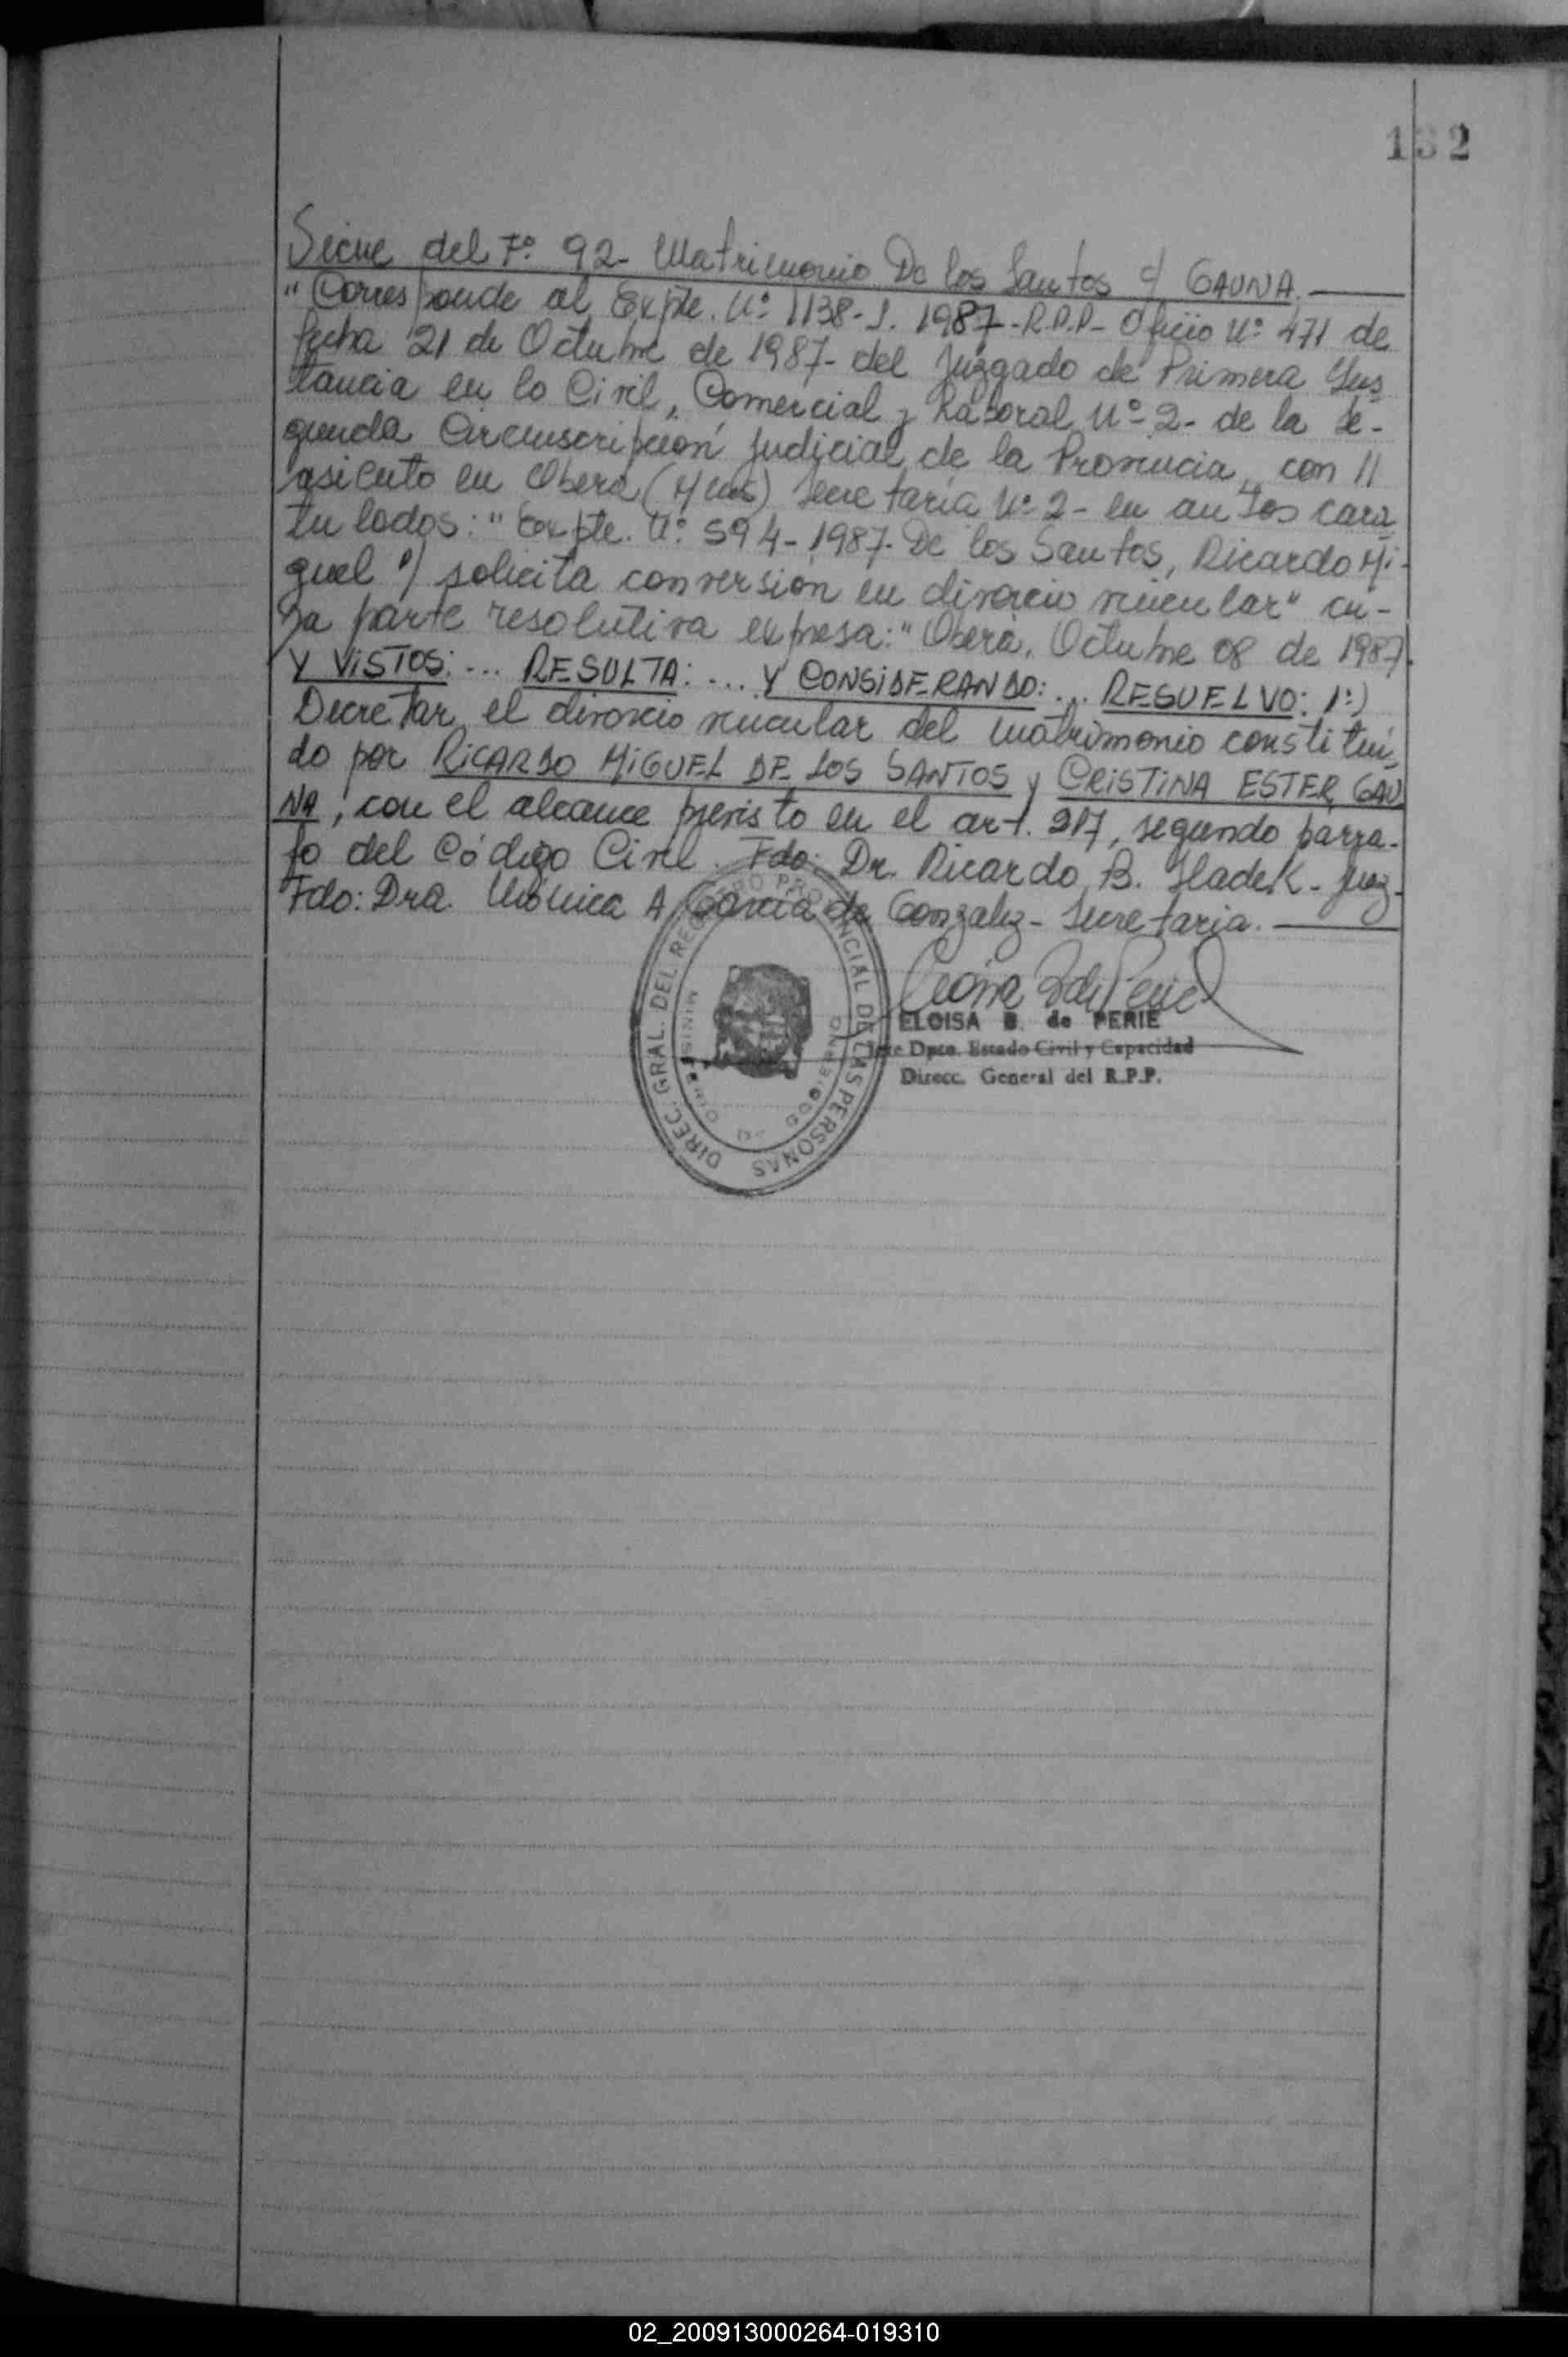 132
Sigue del Fº 92- Matrimonio De los Santos c/ GAUNA.
"Corresponde al Expte. Nº 1138-J. 1987-R.P.P- Oficio Nº 471 de
fecha 21 de Octubre de 1987- del Juzgado de Primera Ins
tancia en lo Civil, Comercial y Laboral Nº 2- de la Se-
gunda Circunscripción Judicial de la Provincia, con //
asiento en Oberá (Mnes) Secretaría Nº 2- en autos cara
tulados: "Expte. Nº 594-1987- De los Santos, Ricardo Mi-
guel s/ solicita conversión en divorcio vincular" cu-
ya parte resolutiva expresa: "Oberá, Octubre 08 de 1987.
Y VISTOS: ... RESULTA: ... Y CONSIDERANDO: ... RESUELVO: 1º)
Decretar el divorcio vincular del matrimonio constituí,
do por RICARDO MIGUEL DE LOS SANTOS y CRISTINA ESTER GAU
NA, con el alcance previsto en el art. 217, segundo párra-
fo del Código Civil. Fdo: Dr. Ricardo B. Sladek- Juez-
Fdo: Dra. Mónica A García de Gonzalez- Secretaria.
DIREC. GRAL. DEL REGISTRO PROVINCIAL DE LAS PERSONAS
MINISTERIO DE GOBIERNO
ELOISA B. de PERIE
Jefe Dpto. Estado Civil y Capacidad
Direcc. General del R.P.P.
02_200913000264-019310